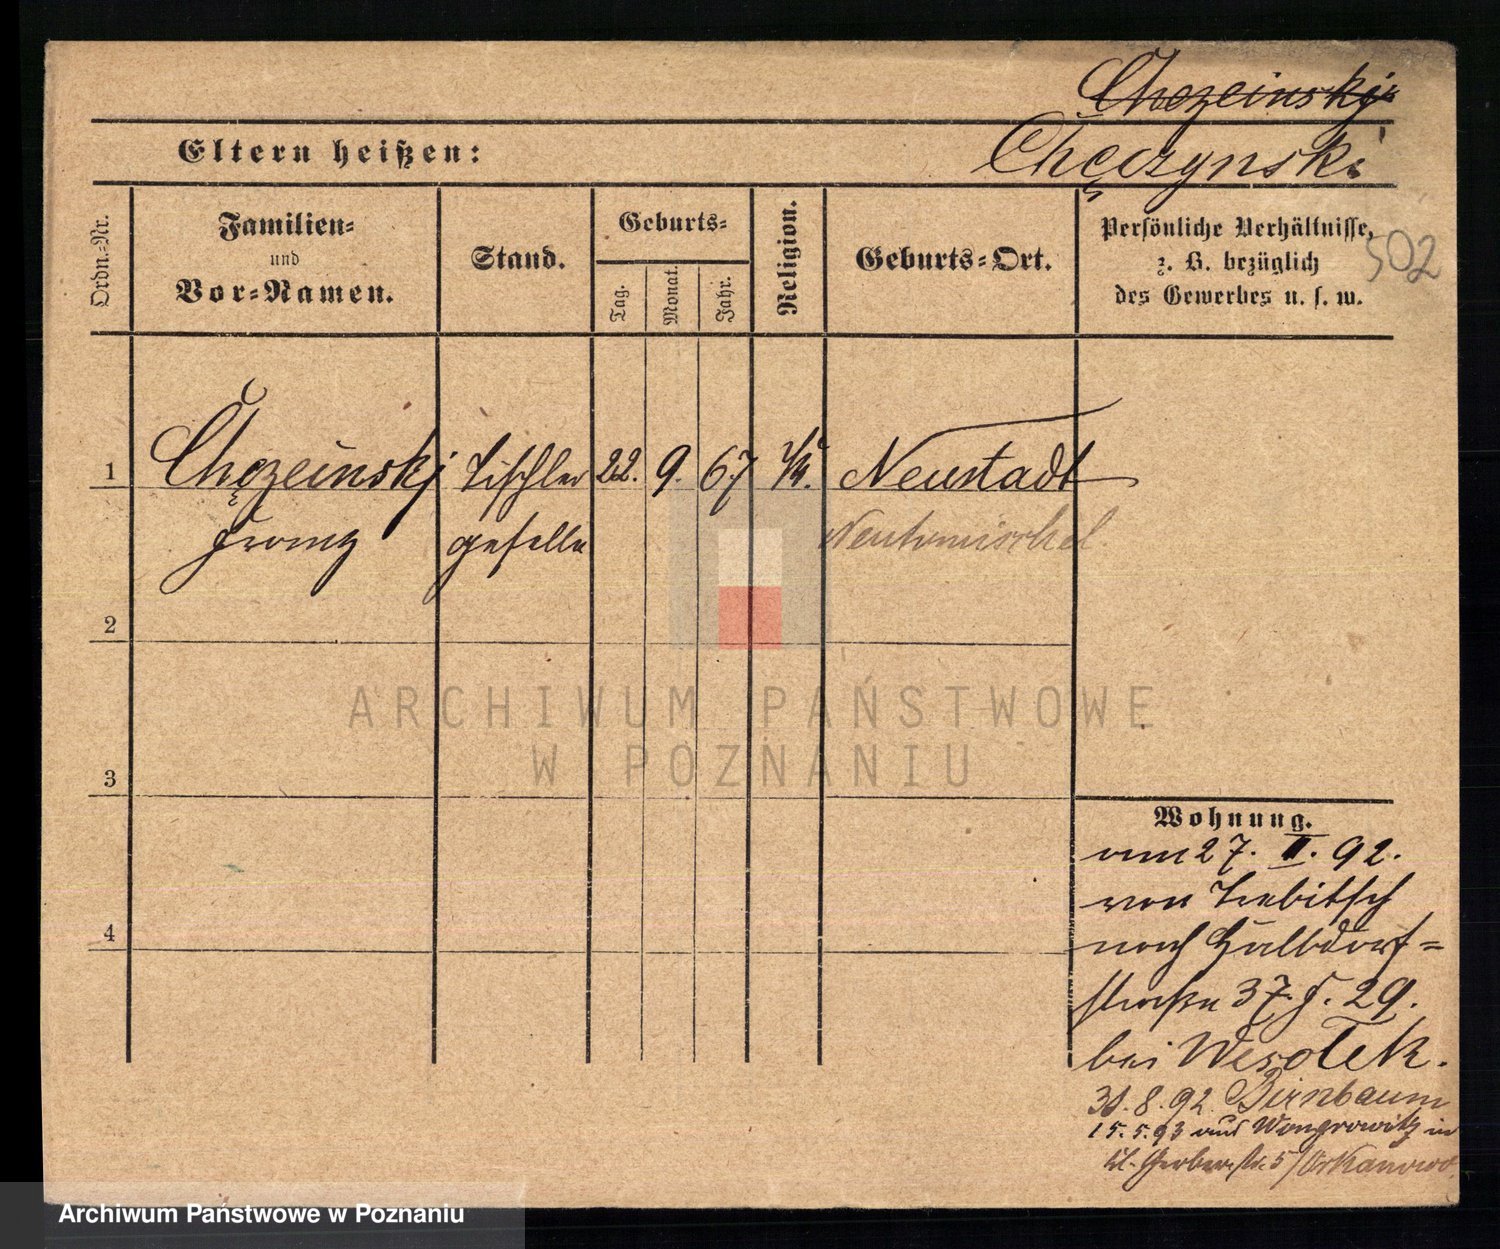 Chęczynski
Eltern heißen:
Ordn.-Nr.
Familien-
und
Vor-Namen.
Stand.
Geburts-
Tag.
Monat.
Jahr.
Religion.
Geburts-Ort.
Persönliche Verhältnisse,
z. B. bezüglich
des Gewerbes u. s. w.
502
1
Tischler
22. 9. 67
Neustadt
Franz
geselle
2
ARCHIWUM PAŃSTWOWE
W POZNANIU
3
Wohnung.
am 27. II. 92.
von Trebitsch
nach Halbdorf-
straße 37. 29.
bei Wesołek.
4
8. 92. Birnbaum
15. 5. 93 aus Wongrowitz in
Gerberstr. 5
Archiwum Państwowe w Poznaniu